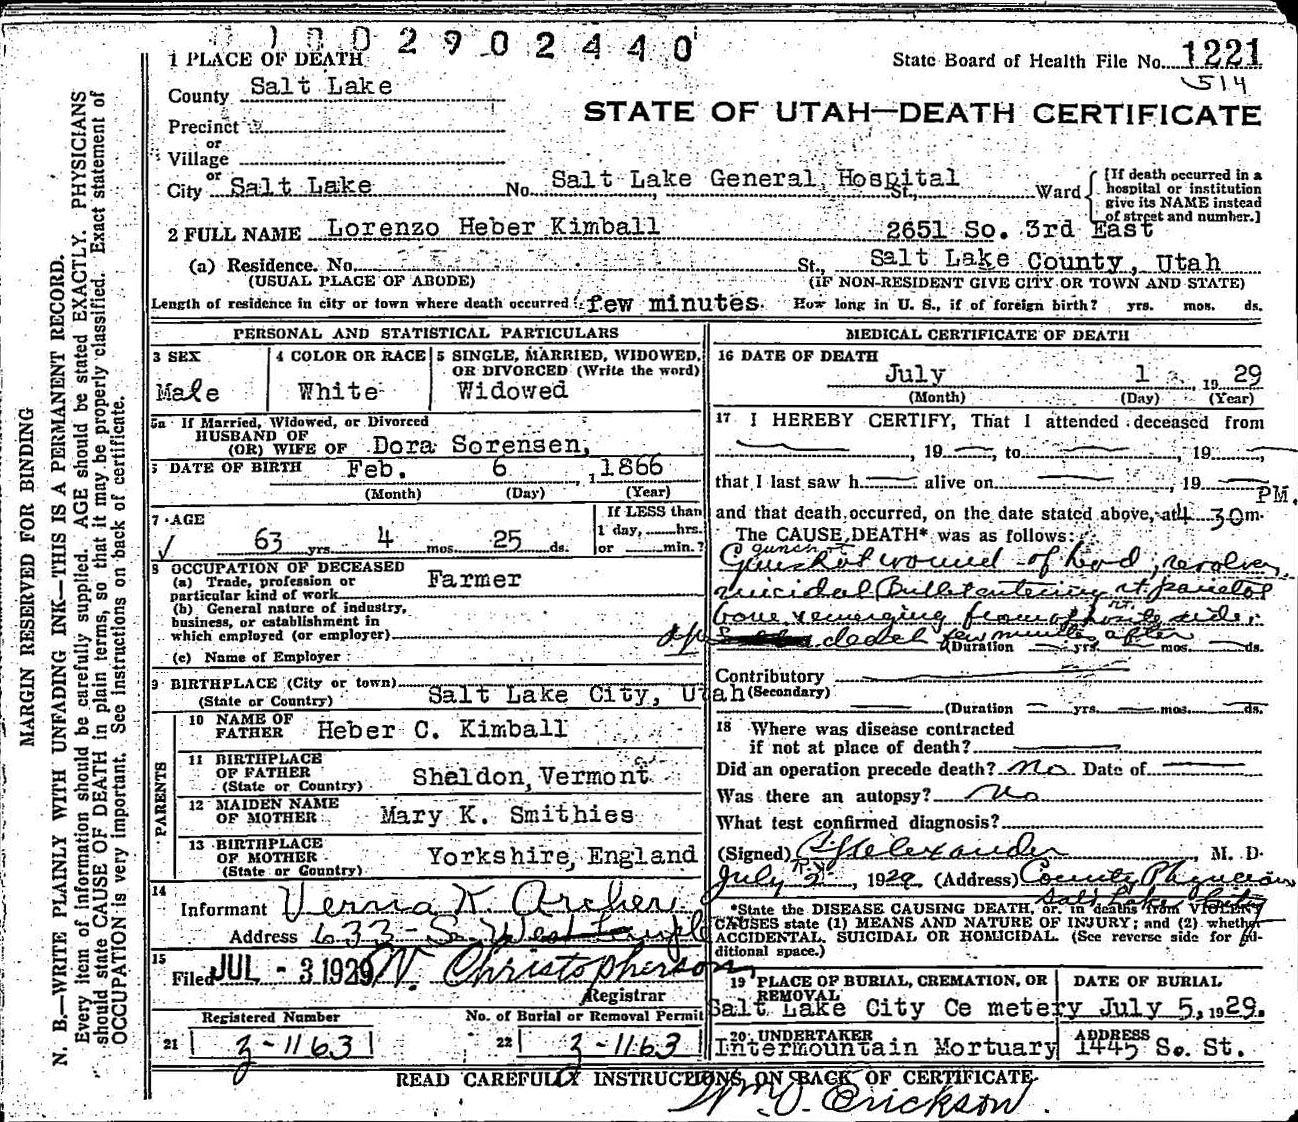 1002902440
1 PLACE OF DEATH
State Board of Health File No. 1221
514
County Salt Lake
STATE OF UTAH—DEATH CERTIFICATE
Precinct
or
Village
or
City Salt Lake No. Salt Lake General Hospital St., Ward
[If death occurred in a
hospital or institution
give its NAME instead
of street and number.]
2 FULL NAME Lorenzo Heber Kimball 2651 So. 3rd East
(a) Residence. No. St., Salt Lake County, Utah
(USUAL PLACE OF ABODE) (IF NON-RESIDENT GIVE CITY OR TOWN AND STATE)
Length of residence in city or town where death occurred few minutes. How long in U. S., if of foreign birth? yrs. mos. ds.
PERSONAL AND STATISTICAL PARTICULARS
3 SEX
Male
4 COLOR OR RACE
White
5 SINGLE, MARRIED, WIDOWED,
OR DIVORCED (Write the word)
Widowed
5a If Married, Widowed, or Divorced
HUSBAND OF
(OR) WIFE OF Dora Sorensen,
DATE OF BIRTH Feb. 6, 1866
(Month) (Day) (Year)
7 AGE
63 yrs. 4 mos. 25 ds.
If LESS than
1 day, hrs.
or min.?
8 OCCUPATION OF DECEASED
(a) Trade, profession or
particular kind of work Farmer
(b) General nature of industry,
business, or establishment in
which employed (or employer)
(c) Name of Employer
9 BIRTHPLACE (City or town)
(State or Country) Salt Lake City, Utah
PARENTS
10 NAME OF
FATHER Heber C. Kimball
11 BIRTHPLACE
OF FATHER
(State or Country) Sheldon, Vermont
12 MAIDEN NAME
OF MOTHER Mary K. Smithies
13 BIRTHPLACE
OF MOTHER
(State or Country) Yorkshire, England
14
Informant Verna K Archer
Address 633 - So West temple
15
Filed JUL - 3 1929 W. Christopherson
Registrar
Registered Number No. of Burial or Removal Permit
21 3-1163 22 3-1163
MEDICAL CERTIFICATE OF DEATH
16 DATE OF DEATH
July 1 1929
(Month) (Day) (Year)
17 I HEREBY CERTIFY, That I attended deceased from
, 19 , to , 19 ,
that I last saw h alive on , 19
PM.
and that death occurred, on the date stated above, at 4 30 m.
The CAUSE DEATH* was as follows:
gunshot
Gunshot wound of head, revolver,
suicidal Bullet entering rt. parietal
bone & emerging from opposite side.
death few minutes after
(Duration yrs. mos. ds.
Contributory
(Secondary)
(Duration yrs. mos. ds.
18 Where was disease contracted
if not at place of death?
Did an operation precede death? No Date of
Was there an autopsy? No
What test confirmed diagnosis?
(Signed) Alexander, M. D.
July 2, 1929 (Address) County Physician
Salt Lake City
*State the DISEASE CAUSING DEATH, or, in deaths from VIOLENT
CAUSES state (1) MEANS AND NATURE OF INJURY; and (2) whether
ACCIDENTAL, SUICIDAL OR HOMICIDAL. (See reverse side for additional space.)
19 PLACE OF BURIAL, CREMATION, OR
REMOVAL
Salt Lake City Ce metery
DATE OF BURIAL
July 5, 1929.
20 UNDERTAKER
Intermountain Mortuary
ADDRESS
1445 So. St.
READ CAREFULLY INSTRUCTIONS ON BACK OF CERTIFICATE.
Wm J. Erickson.
MARGIN RESERVED FOR BINDING
N. B.—WRITE PLAINLY WITH UNFADING INK—THIS IS A PERMANENT RECORD.
Every item of information should be carefully supplied. AGE should be stated EXACTLY. PHYSICIANS
should state CAUSE OF DEATH in plain terms, so that it may be properly classified. Exact statement of
OCCUPATION is very important. See instructions on back of certificate.